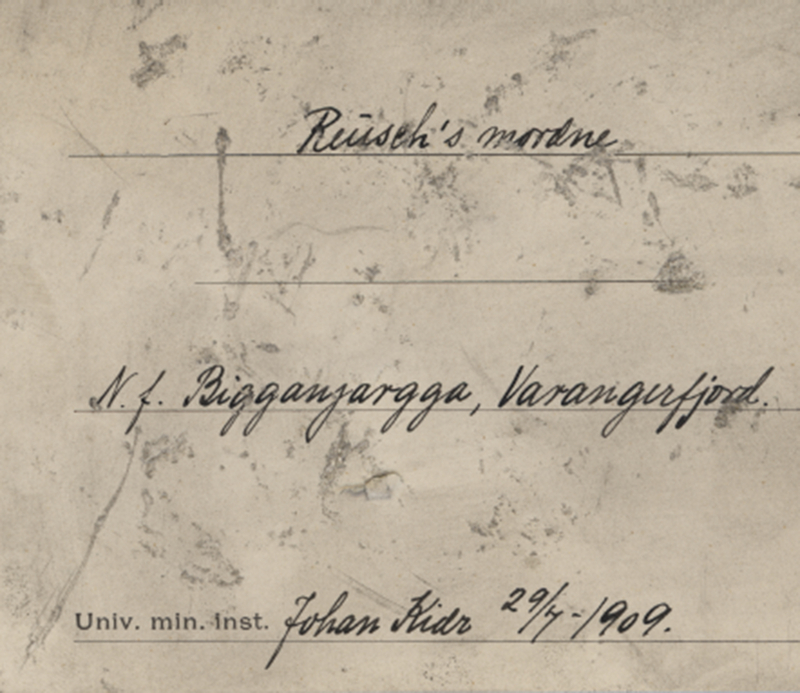 Reusch's mordne
N. f. Bigganjargga, Varangerfjord.
Univ. min. inst. Johan Kidr 29/7-1909.